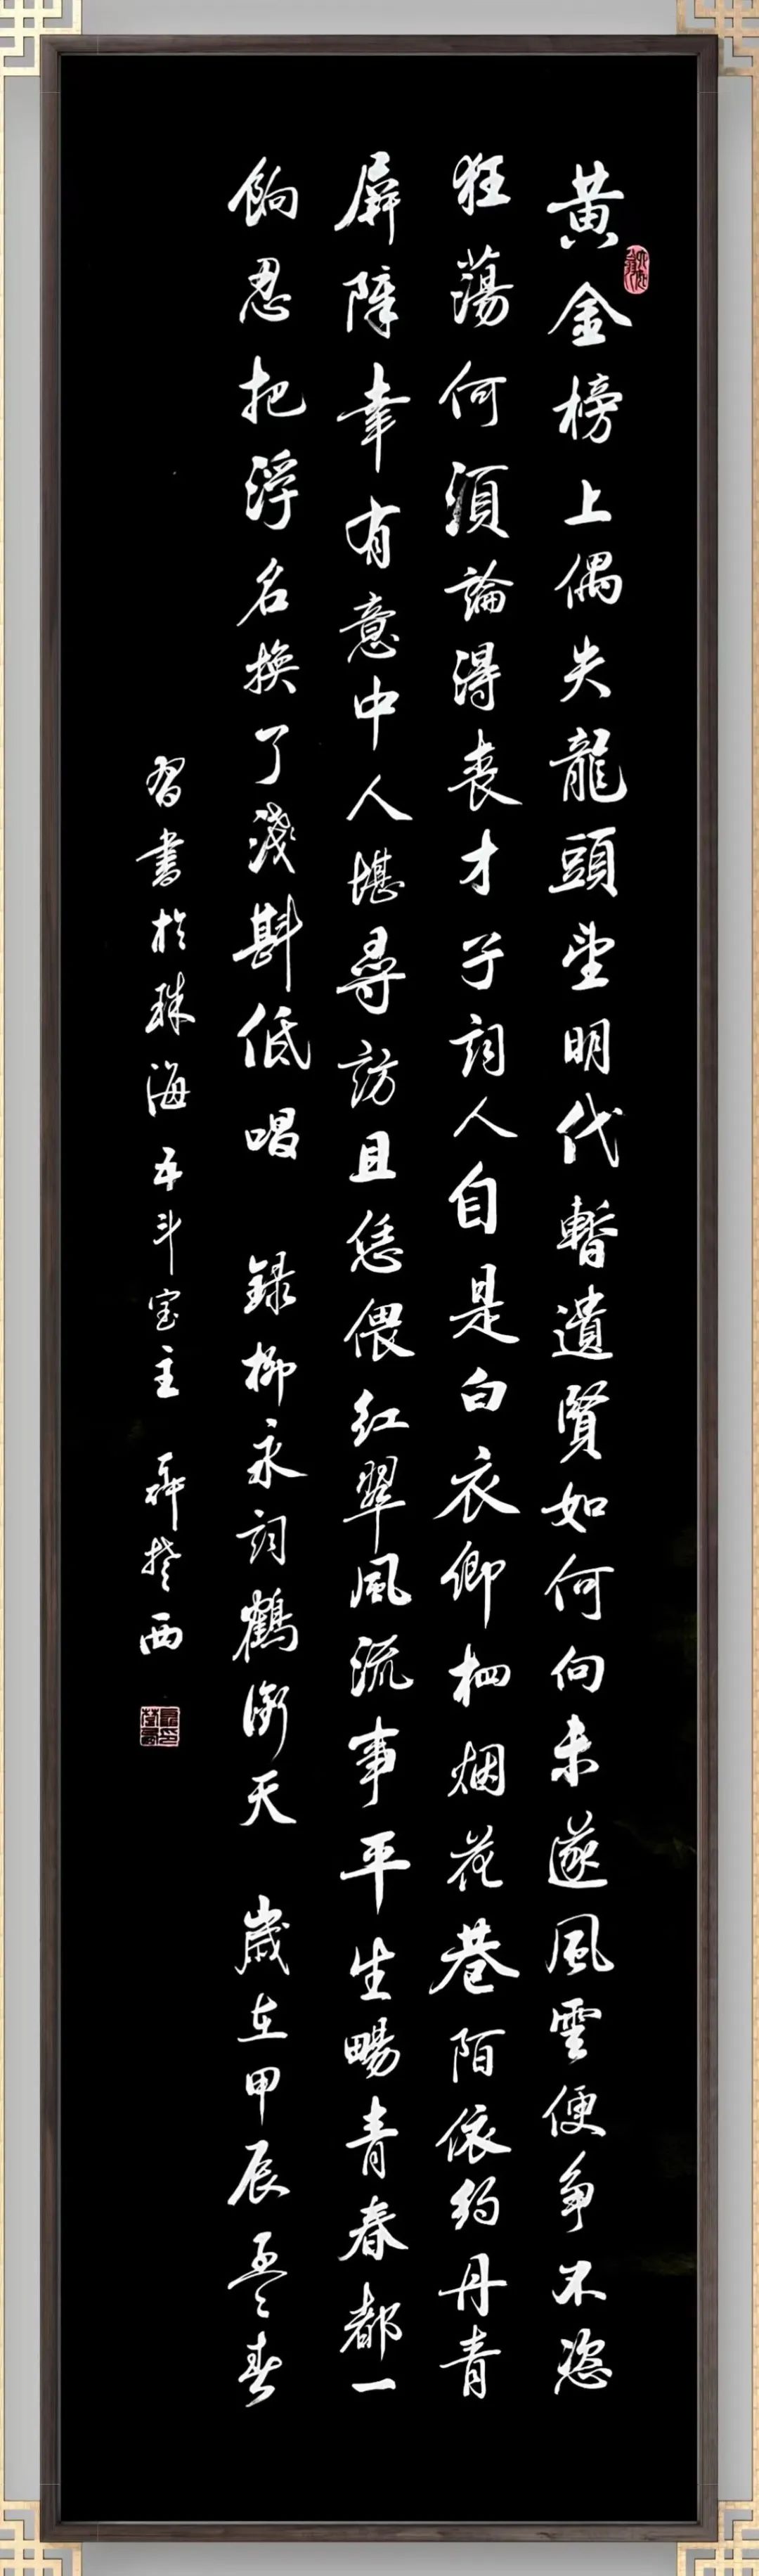 黄金榜上偶失龍頭望明代暫遺賢如何向未遂風雲便争不恣
狂蕩何須論得喪才子詞人自是白衣卿相烟花巷陌依約丹青
屏障幸有意中人堪尋訪且恁偎紅翠風流事平生暢青春都一
餉忍把浮名換了淺斟低唱 録柳永詞鶴衝天 歲在甲辰孟春
習書於珠海五斗室主 西